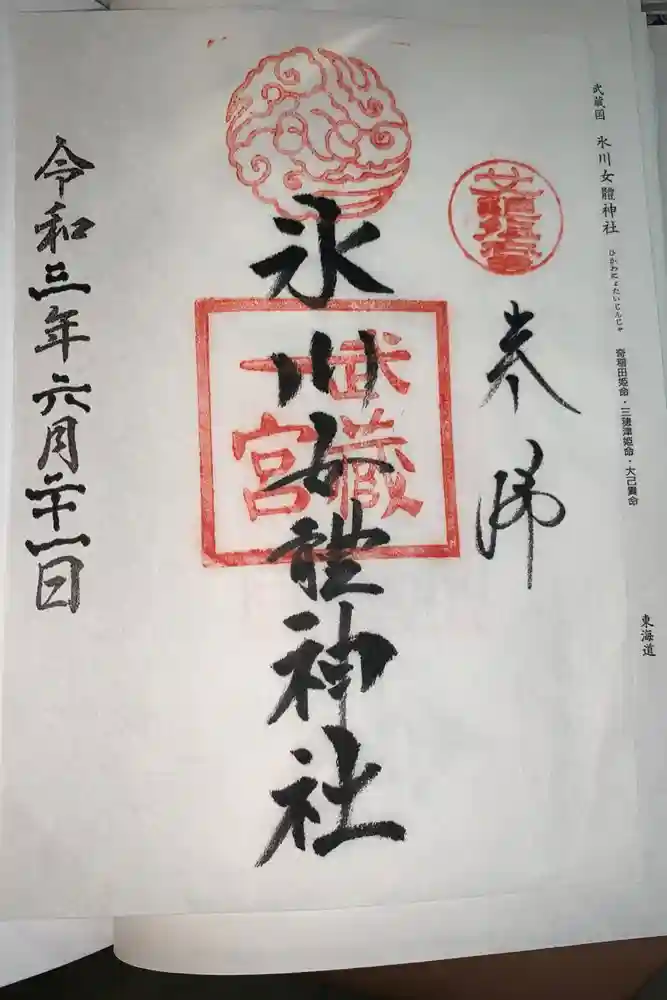 武蔵国 氷川女體神社 ひかわにょたいじんじゃ 奇稲田姫命・三穂津姫命・大己貴命
東海道
奉拝
氷川女體神社
武蔵
一宮
令和三年六月二十一日